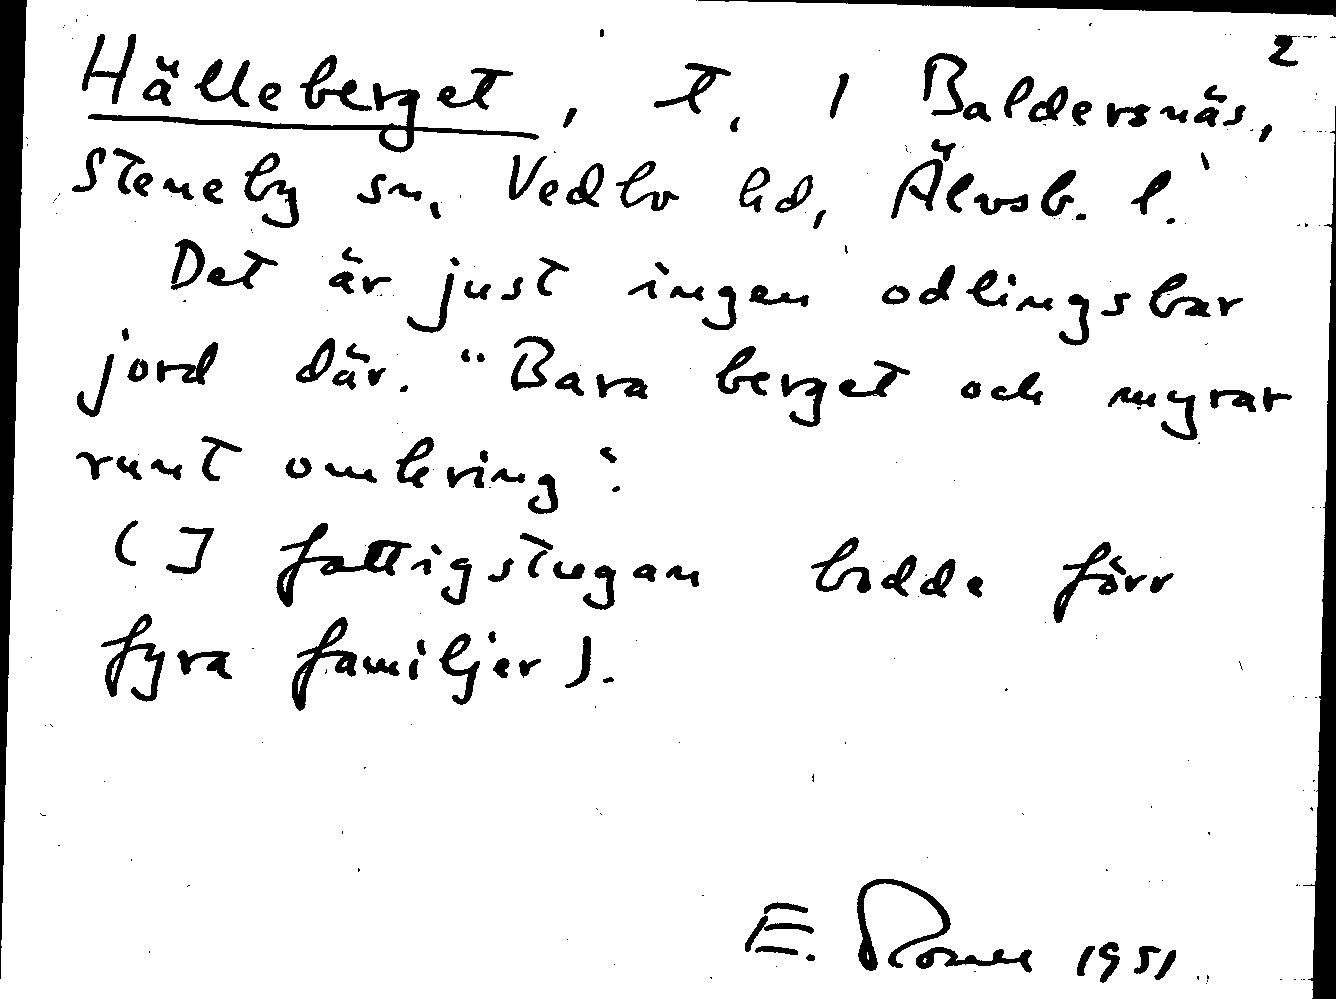 2
Hälleberget, t. 1 Baldersnäs,
Steneby sn, Vedbo hd, Älvsb. l.
Det är just ingen odlingsbar
jord där. "Bara berget och myrar
runt omkring".
(I fattigstugan bodde förr
fyra familjer).
E. 1951